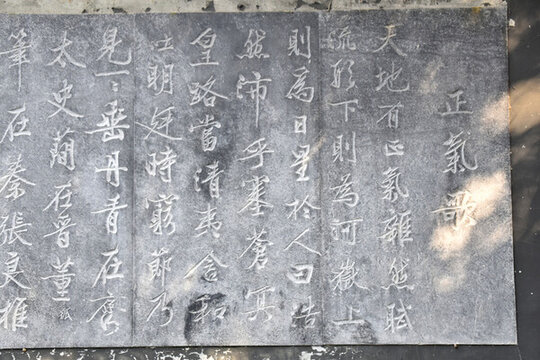 正氣歌
天地有正氣雜然賦
流形下則為河嶽上
則為日星於人曰浩
然沛乎塞蒼冥
皇路當清夷含和
吐明廷時窮節乃
見一:垂丹青在齊
太史簡在晉董
筆在秦張良椎